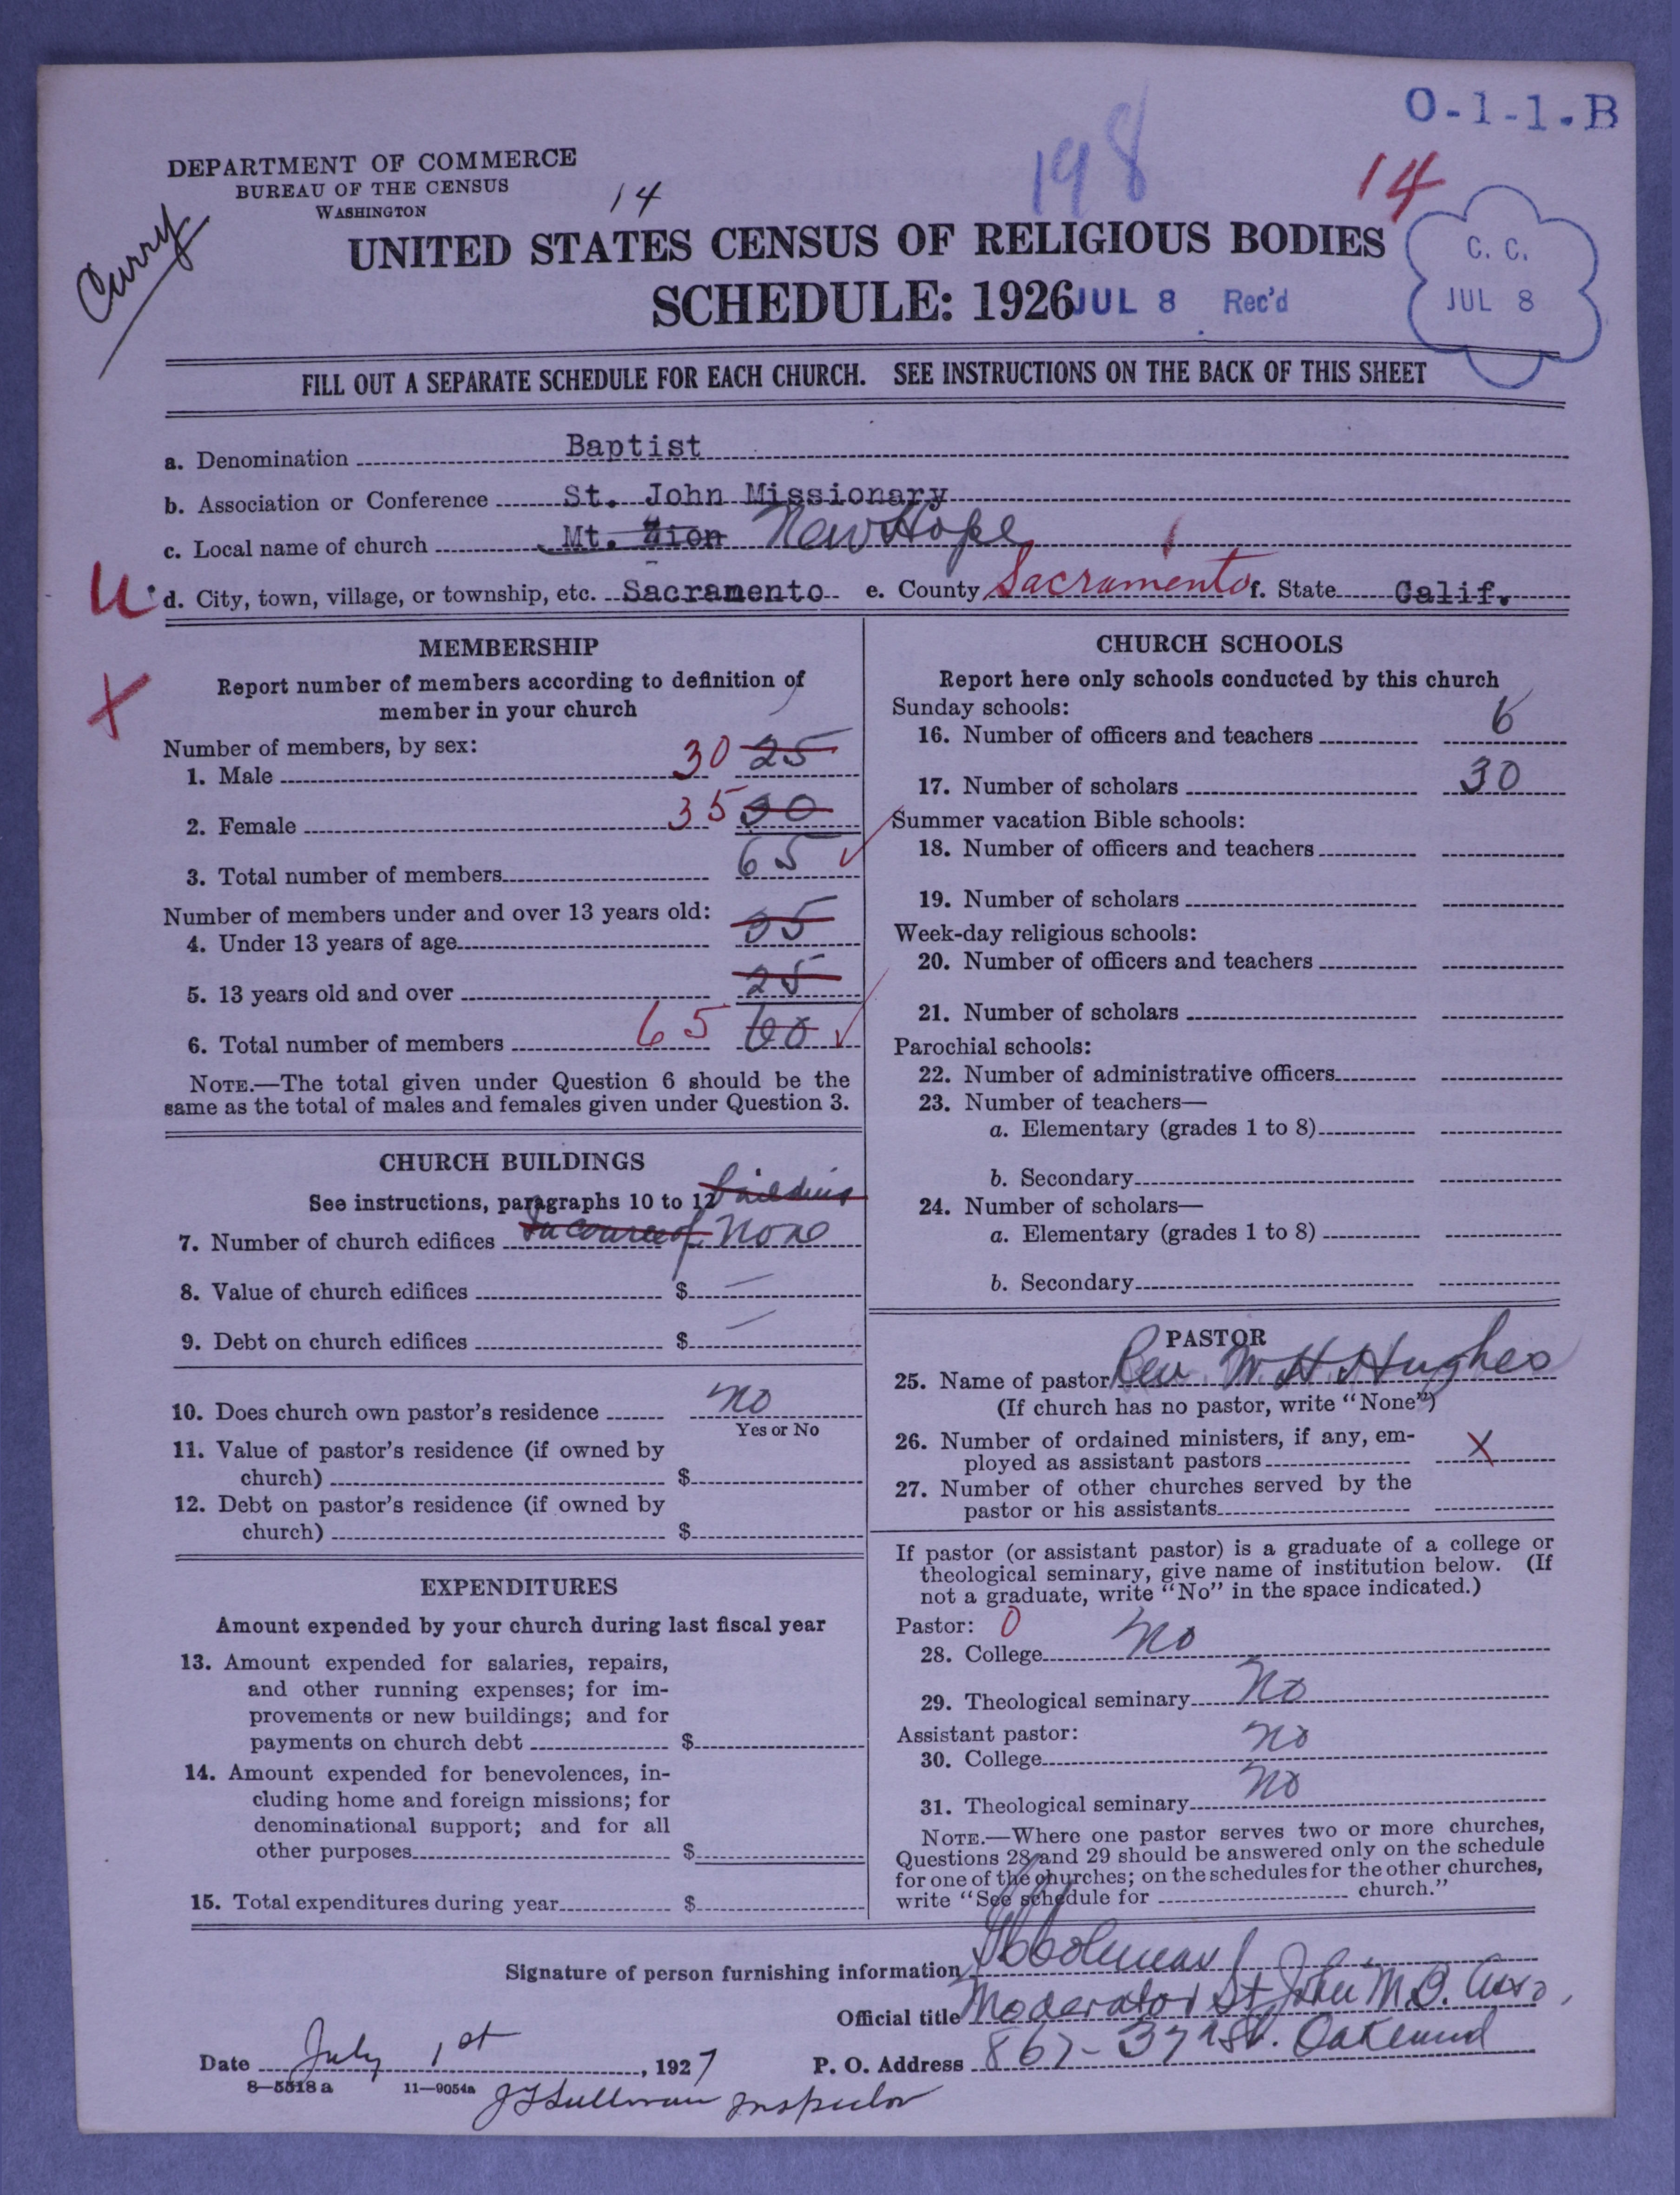 O-1-1.B
198
14
DEPARTMENT OF COMMERCE
BUREAU OF THE CENSUS
WASHINGTON
14
Curry
UNITED STATES CENSUS OF RELIGIOUS BODIES
SCHEDULE: 1926
JUL 8 Rec'd
C. C.
JUL 8
FILL OUT A SEPARATE SCHEDULE FOR EACH CHURCH. SEE INSTRUCTIONS ON THE BACK OF THIS SHEET
a. Denomination Baptist
b. Association or Conference St. John Missionary
c. Local name of church Mt. Zion New Hope
U d. City, town, village, or township, etc. Sacramento e. County Sacramento f. State Calif.
X
MEMBERSHIP
Report number of members according to definition of
member in your church
Number of members, by sex:
1. Male 30 25
2. Female 35 30
3. Total number of members 65
Number of members under and over 13 years old:
4. Under 13 years of age 35
5. 13 years old and over 25
6. Total number of members 65 60
NOTE.—The total given under Question 6 should be the
same as the total of males and females given under Question 3.
CHURCH BUILDINGS
See instructions, paragraphs 10 to 12 building
7. Number of church edifices In course of None
8. Value of church edifices $ —
9. Debt on church edifices $ —
10. Does church own pastor's residence No
Yes or No
11. Value of pastor's residence (if owned by
church) $
12. Debt on pastor's residence (if owned by
church) $
EXPENDITURES
Amount expended by your church during last fiscal year
13. Amount expended for salaries, repairs,
and other running expenses; for im-
provements or new buildings; and for
payments on church debt $
14. Amount expended for benevolences, in-
cluding home and foreign missions; for
denominational support; and for all
other purposes $
15. Total expenditures during year $
CHURCH SCHOOLS
Report here only schools conducted by this church
Sunday schools:
16. Number of officers and teachers 6
17. Number of scholars 30
Summer vacation Bible schools:
18. Number of officers and teachers
19. Number of scholars
Week-day religious schools:
20. Number of officers and teachers
21. Number of scholars
Parochial schools:
22. Number of administrative officers
23. Number of teachers—
a. Elementary (grades 1 to 8)
b. Secondary
24. Number of scholars—
a. Elementary (grades 1 to 8)
b. Secondary
PASTOR
25. Name of pastor Rev. W. H. Hughes
(If church has no pastor, write "None")
26. Number of ordained ministers, if any, em-
ployed as assistant pastors X
27. Number of other churches served by the
pastor or his assistants
If pastor (or assistant pastor) is a graduate of a college or
theological seminary, give name of institution below. (If
not a graduate, write "No" in the space indicated.)
Pastor: 0
28. College No
29. Theological seminary No
Assistant pastor:
30. College No
31. Theological seminary No
NOTE.—Where one pastor serves two or more churches,
Questions 28 and 29 should be answered only on the schedule
for one of the churches; on the schedules for the other churches,
write "See schedule for church."
Signature of person furnishing information Coleman
Official title Moderator St John M.B. Asso,
Date July 1st, 1927 P. O. Address 867- 37 St. Oakland
8-5518 a 11-9054a J F Sullivan Inspector